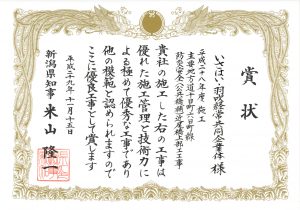 賞状
いさはい・羽路経常共同企業体 様
平成二十八年度 施工
主要地方道十日町六日町線
防災安全(公共橋補)近尾橋上部工工事
貴社の施工した右の工事は
優れた施工管理と技術力に
よる極めて優秀な工事であり
他の模範と認められますので
ここに優良工事として賞します
平成二十九年十一月十五日
新潟県知事 米山 隆一